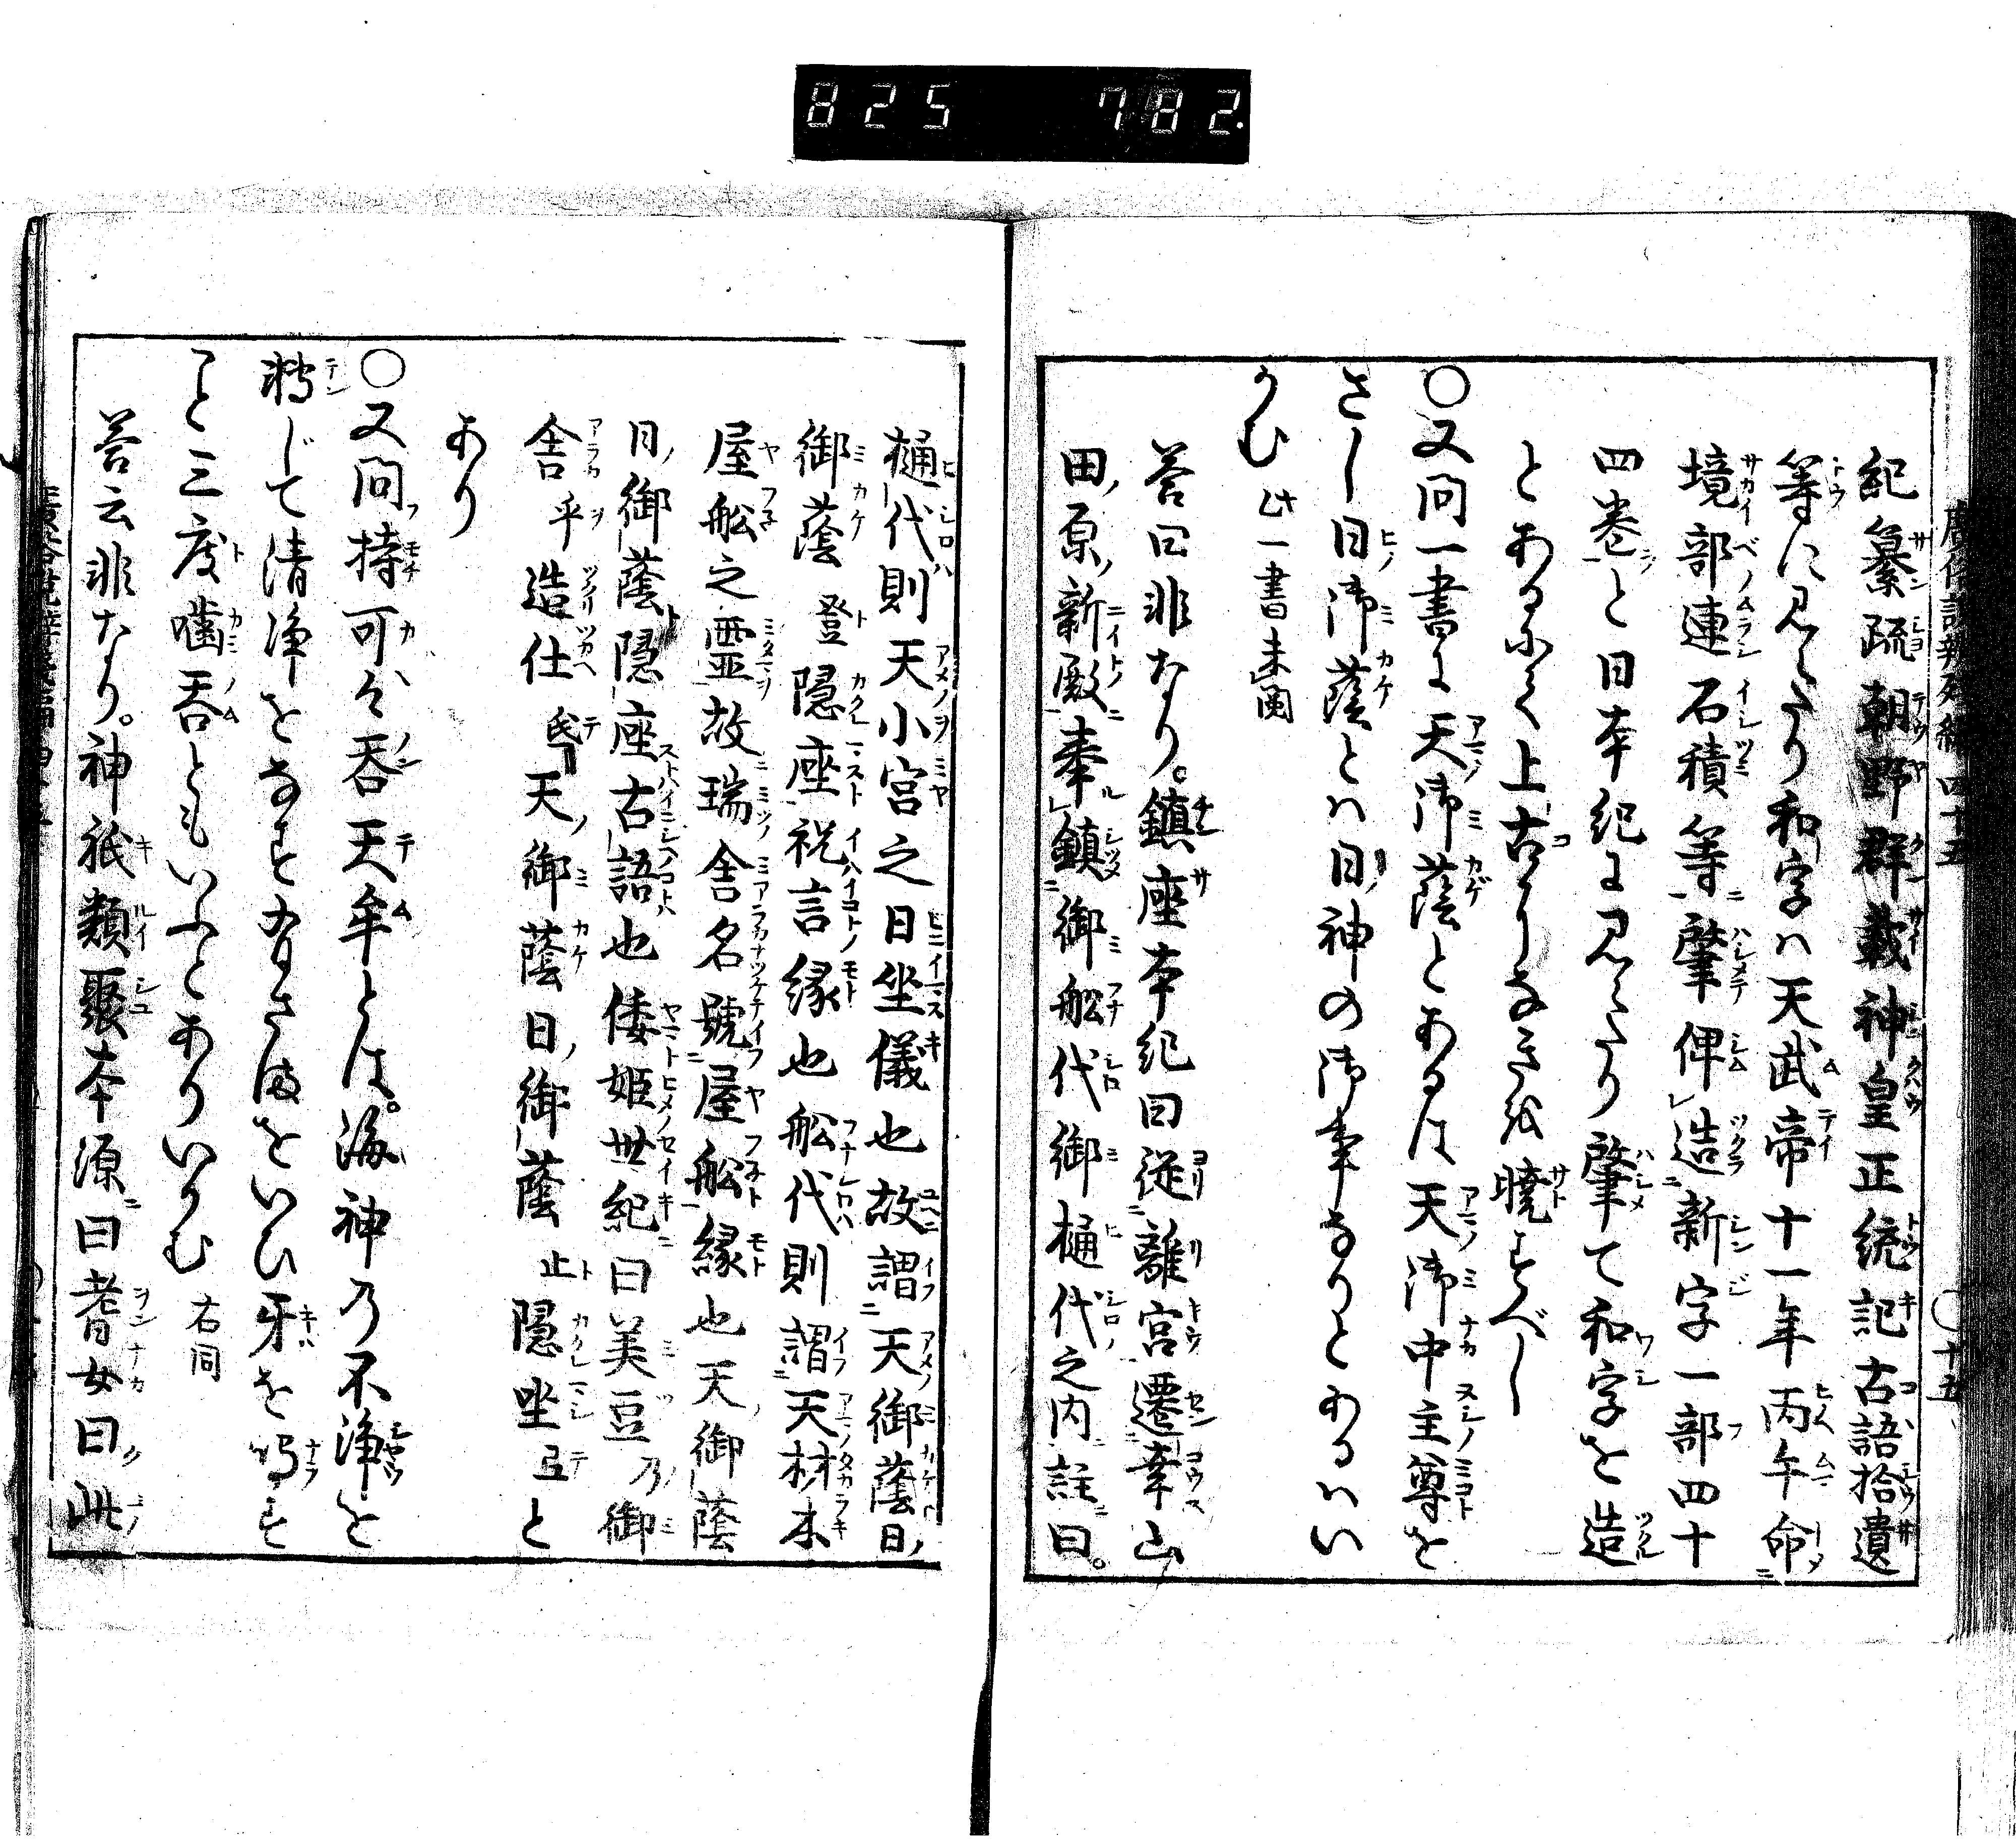 825 782.
紀纂疏朝野群載神皇正統記古語拾遺
等に見えたり和字ハ天武帝十一年丙午命
境部連石積等肇俾造新字一部四十
四巻と日本紀に見えたり肇て和字を造
とあるにて上古になき㕝暁すべし
〇又問一書に天御蔭とあるは天御中主尊を
さし日御蔭とハ日神の御事なりとあるハい
かむ 此一書未閲
答曰非なり。鎮座本紀曰従離宮遷幸山
田原新殿奉鎮御船代御樋代之内註曰。
樋代則天小宮之日坐儀也故謂天御蔭日
御蔭登隠座祝言縁也船代則謂天材木
屋船之霊故瑞舎名號屋船縁也天御蔭
日御蔭隠座古語也倭姫世紀曰美豆乃御
舎乎造仕氐天御蔭日御蔭止隠坐氐と
あり
〇又問持可々呑天牟とは。海神乃不浄を
転じて清浄となす有さまをいひ牙を鳴す
こと三度噛呑ともいふとありいかむ 右同
答云非なり。神祇類聚本源曰耆女曰此